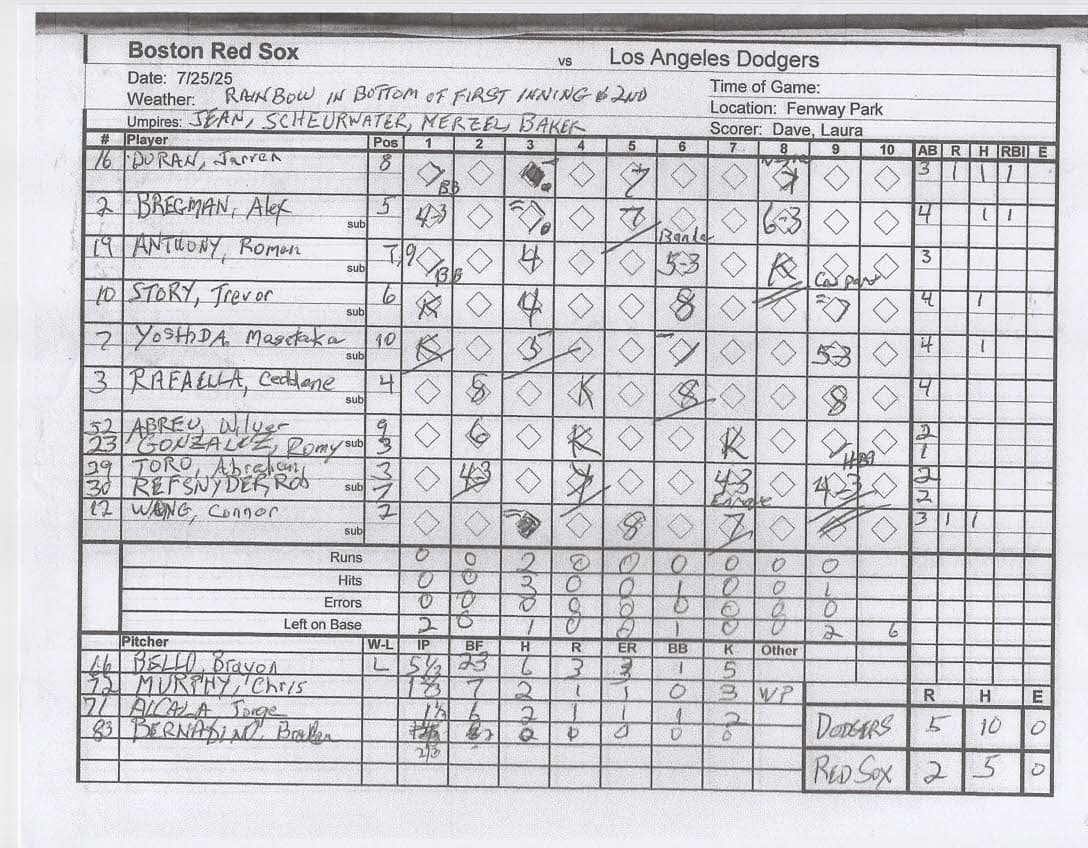 Boston Red Sox vs Los Angeles Dodgers
Date: 7/25/25 Time of Game:
Weather: RAINBOW IN BOTTOM OF FIRST INNING & 2ND Location: Fenway Park
Umpires: JEAN, SCHEURWATER, MERZEL, BAKER Scorer: Dave, Laura
# Player Pos 1 2 3 4 5 6 7 8 9 10 AB R H RBI E
16 DURAN, Jarren 8 BB 7 7 3 1 1 1
2 BREGMAN, Alex sub 5 4-3 7 6-3 4 1 1
19 ANTHONY, Roman sub 7,9 BB 4 Banda 5-3 K 3
10 STORY, Trevor sub 6 K 4 8 Casparius 7 4 1
7 YOSHIDA Masataka sub 10 K 5 7 5-3 4 1
3 RAFAELLA, Ceddane sub 4 8 K 8 8 4
52 ABREU, Wilyer 9 6 K K 2
23 GONZALEZ, Romy sub 3 HBP 1
29 TORO, Abraham 3 4-3 4-3 4-3 2
30 REFSNYDER, Rob sub 7 2
12 WONG, Connor sub 2 8 7 3 1 1
Runs 0 0 2 0 0 0 0 0 0
Hits 0 0 3 0 0 1 0 0 1
Errors 0 0 0 0 0 0 0 0 0
Left on Base 2 0 1 0 0 1 0 0 2 6
Pitcher W-L IP BF H R ER BB K Other
66 BELLO, Brayon L 5 1/3 23 6 3 3 1 5
72 MURPHY, Chris 1 2/3 7 2 1 1 0 3 WP
71 ALCALA Jorge 1 1/3 6 2 1 1 1 2
83 BERNADINO, Braden 2 0 0 0 0 0
2/3
R H E
DODGERS 5 10 0
RED SOX 2 5 0